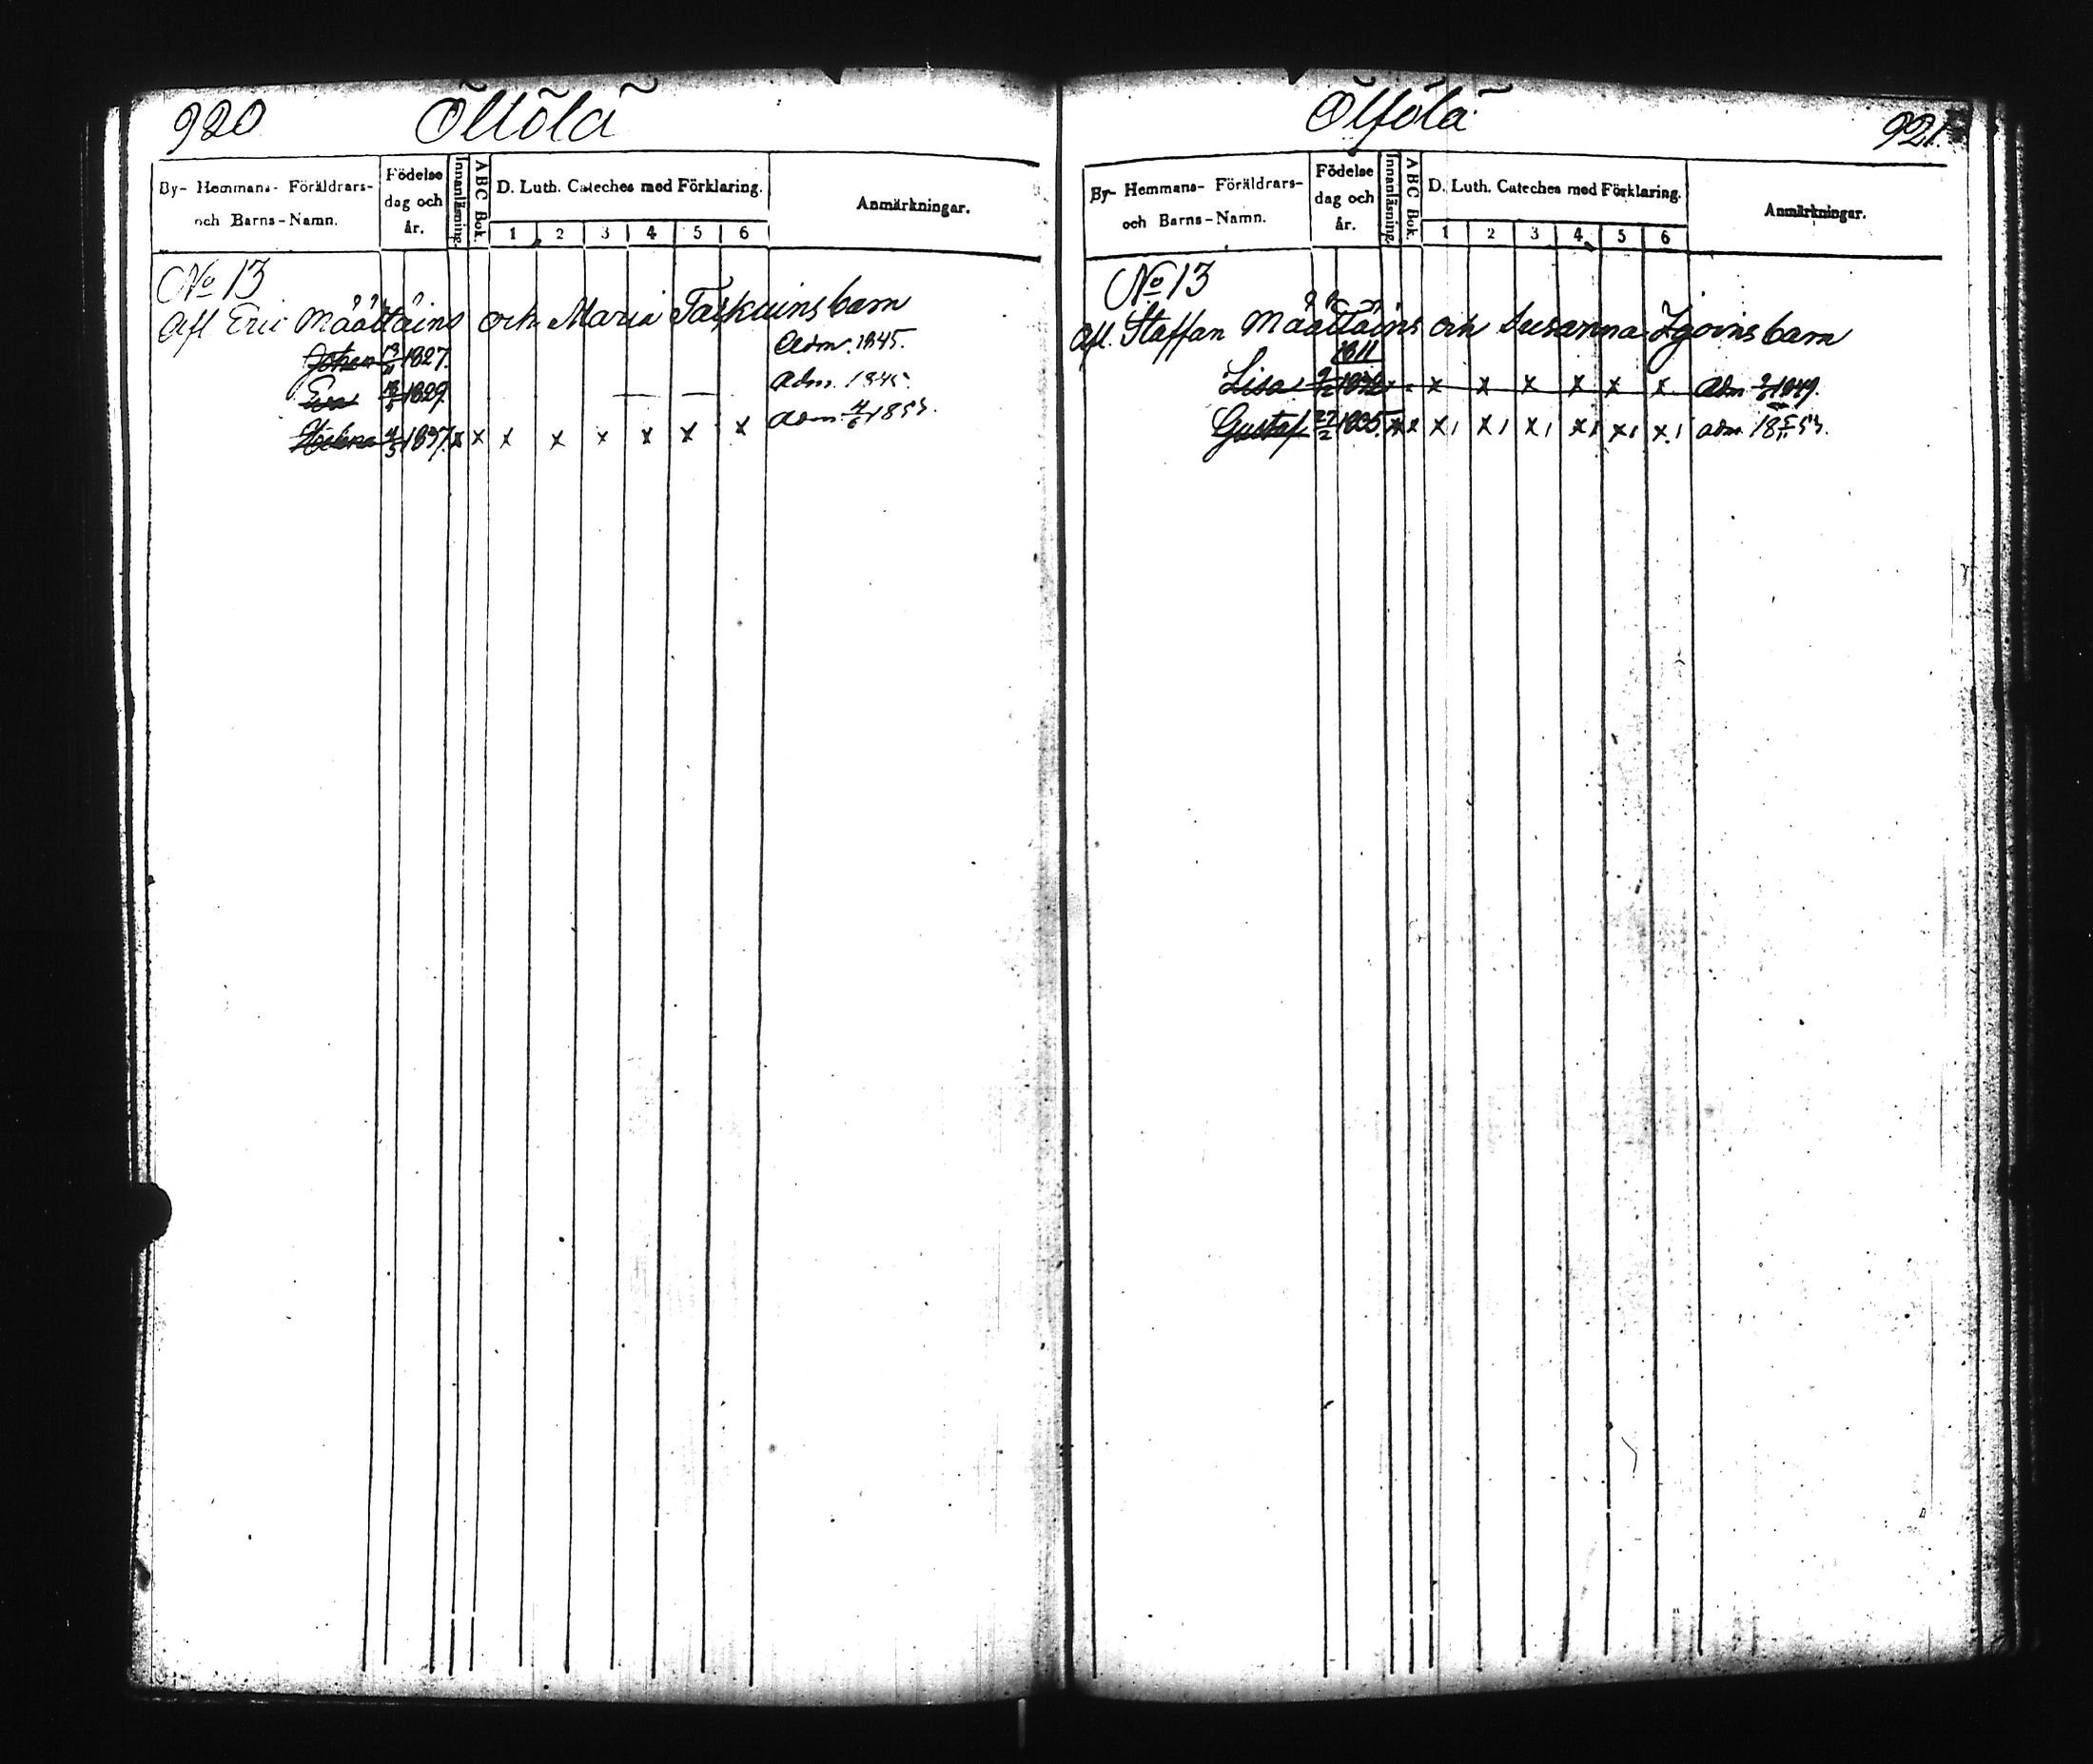 920 Öllölä
By- Hemmans- Föräldrars- och Barns-Namn. Födelse dag och år. Innanläsning. ABC Bok. D. Luth. Cateches med Förklaring. Anmärkningar.
1 2 3 4 5 6
No 13
Afl Eric Määttäins och Maria Taskuins barn
Johan 1827. Adm. 1845.
Eva 1829 — — Adm. 1845.
Helena 4/5 1837. x x x x x x x x adm 4/6 1853.
Ölfölä 921.
By- Hemmans- Föräldrars- och Barns-Namn. Födelse dag och år. Innanläsning. ABC Bok. D. Luth. Cateches med Förklaring. Anmärkningar.
1 2 3 4 5 6
No 13
Afl. Staffan Määttäins och Susanna barn
1811
Lisa x x x x x x adm 1849.
Gustaf 27/2 1835. x x x x x x x x adm 18 53.